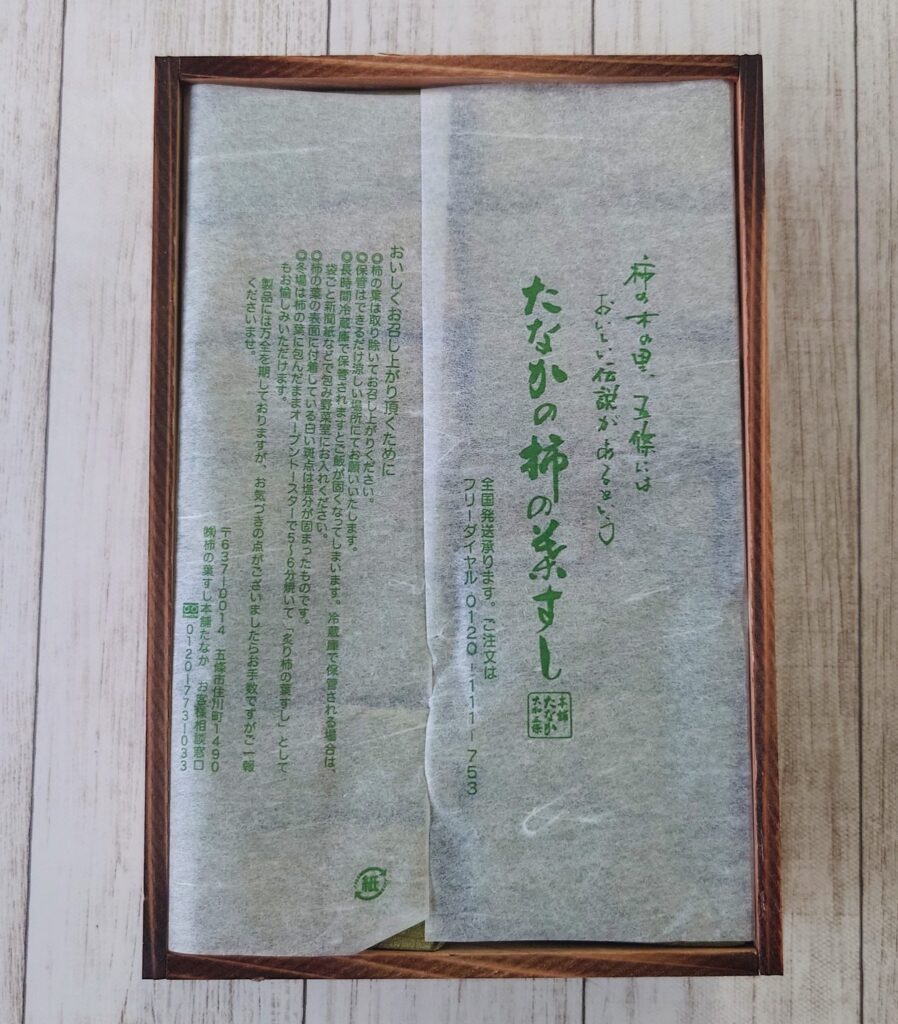 柿の木の里、五條には
おいしい伝説があるという
たなかの柿の葉すし
本舗
たなか
大和五條
全国発送承ります。ご注文は
フリーダイヤル 0120-111-753
おいしくお召し上がり頂くために
◎柿の葉は取り除いてお召し上がりください。
◎保管はできるだけ涼しい場所にてお願いいたします。
◎長時間冷蔵庫で保管されますとご飯が固くなってしまいます。冷蔵庫で保管される場合は、
袋ごと新聞紙などで包み野菜室にお入れください。
◎柿の葉の表面に付着している白い斑点は塩分が固まったものです。
◎冬場は柿の葉に包んだままオーブントースターで5〜6分焼いて「炙り柿の葉すし」として
もお愉しみいただけます。
製品には万全を期しておりますが、お気づきの点がございましたらお手数ですがご一報
くださいませ。
〒637-0014 五條市住川町1490
㈱柿の葉すし本舗たなか お客様相談窓口
0120-773-033
紙